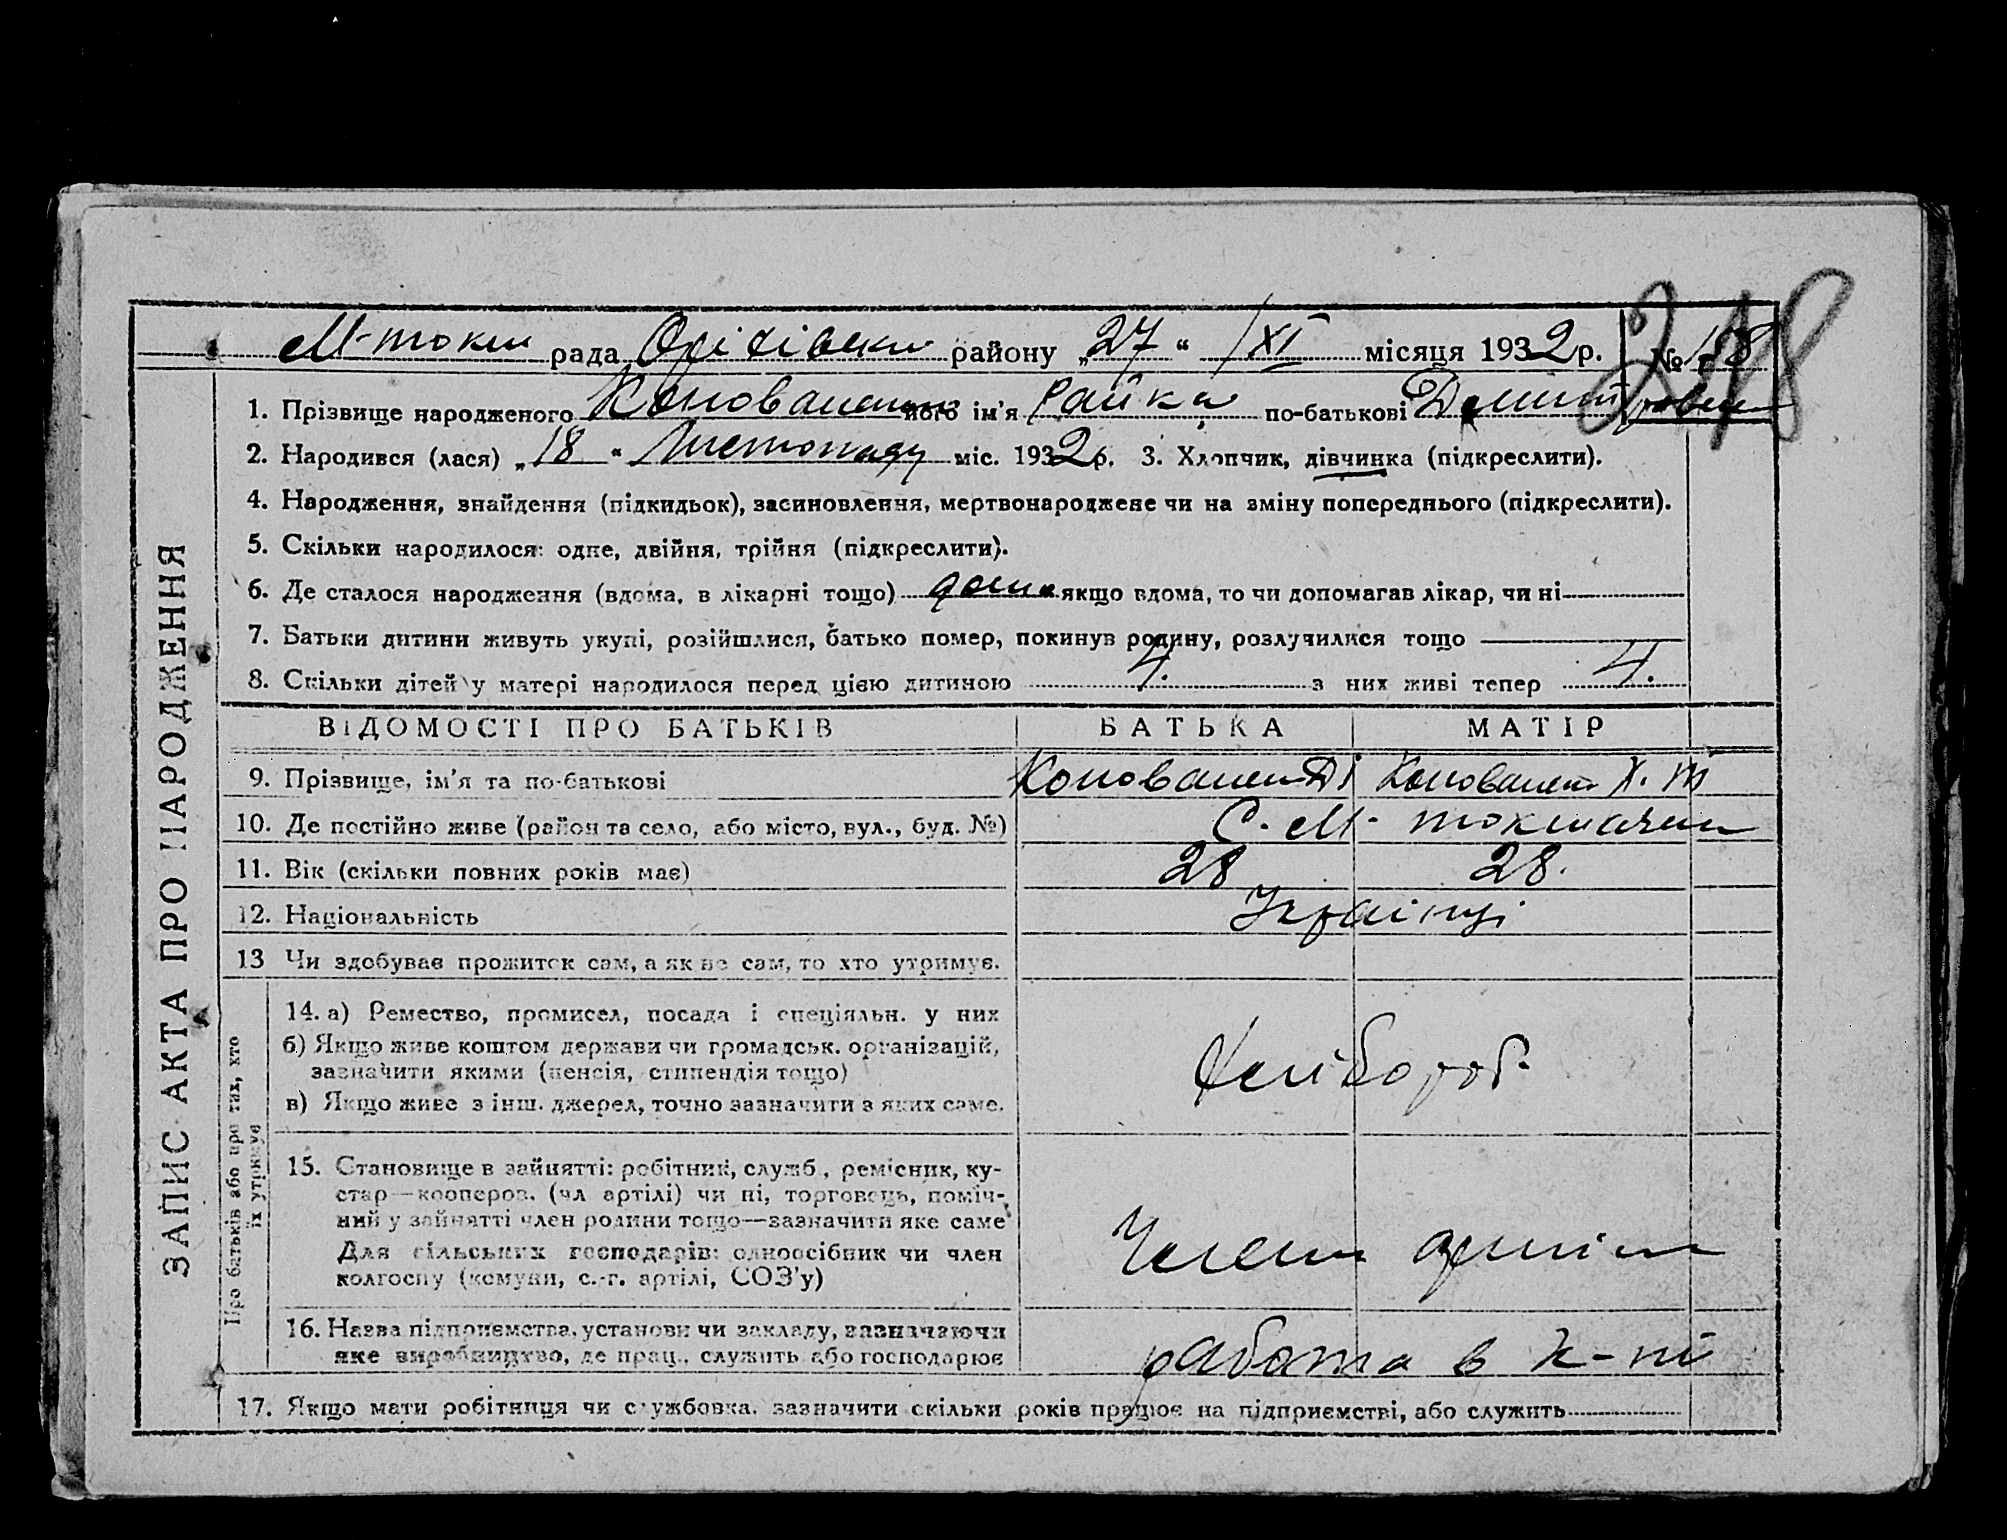 М-токм рада Оріхівськ району „27“ /XI місяця 1932 р. № 188
218
1. Прізвище народженого його ім'я Райка по-батькові
2. Народився (лася) „18“ Листопаду міс. 1932 р. 3. Хлопчик, дівчинка (підкреслити).
4. Народження, знайдення (підкидьок), засиновлення, мертвонароджене чи на зміну попереднього (підкреслити).
5. Скільки народилося: одне, двійня, трійня (підкреслити).
6. Де сталося народження (вдома, в лікарні тощо) дома якщо вдома, то чи допомагав лікар, чи ні
7. Батьки дитини живуть укупі, розійшлися, батько помер, покинув родину, розлучилися тощо
8. Скільки дітей у матері народилося перед цією дитиною 4. з них живі тепер 4.
ЗАПИС АКТА ПРО НАРОДЖЕННЯ
ВІДОМОСТІ ПРО БАТЬКІВ БАТЬКА МАТІР
9. Прізвище, ім'я та по-батькові Коновален Д І Коновален Х. Т
10. Де постійно живе (район та село, або місто, вул., буд. №) С. М-токмачин
11. Вік (скільки повних років має) 28 28.
12. Національність Українці
13 Чи здобуває прожиток сам, а як не сам, то хто утримує.
Про батьків або про тих, хто
їх утримує
14. а) Ремество, промисел, посада і спеціяльн. у них
б) Якщо живе коштом держави чи громадськ. організацій,
зазначити якими (пенсія, стипендія тощо)
в) Якщо живе з інш. джерел, точно зазначити з яких саме.
Хлібороб
15. Становище в зайнятті: робітник, служб., ремісник, ку-
стар—кооперов. (чл артілі) чи ні, торговець, поміч-
ний у зайнятті член родини тощо—зазначити яке саме
Для сільських господарів: одноосібник чи член
колгоспу (комуни, с.-г. артілі, СОЗ'у)
Член артіли
16. Назва підприємства, установи чи закладу, зазначаючи
яке виробництво, де прац., служить або господарює
работа в к-пі
17. Якщо мати робітниця чи службовка, зазначити скільки років працює на підприємстві, або служить